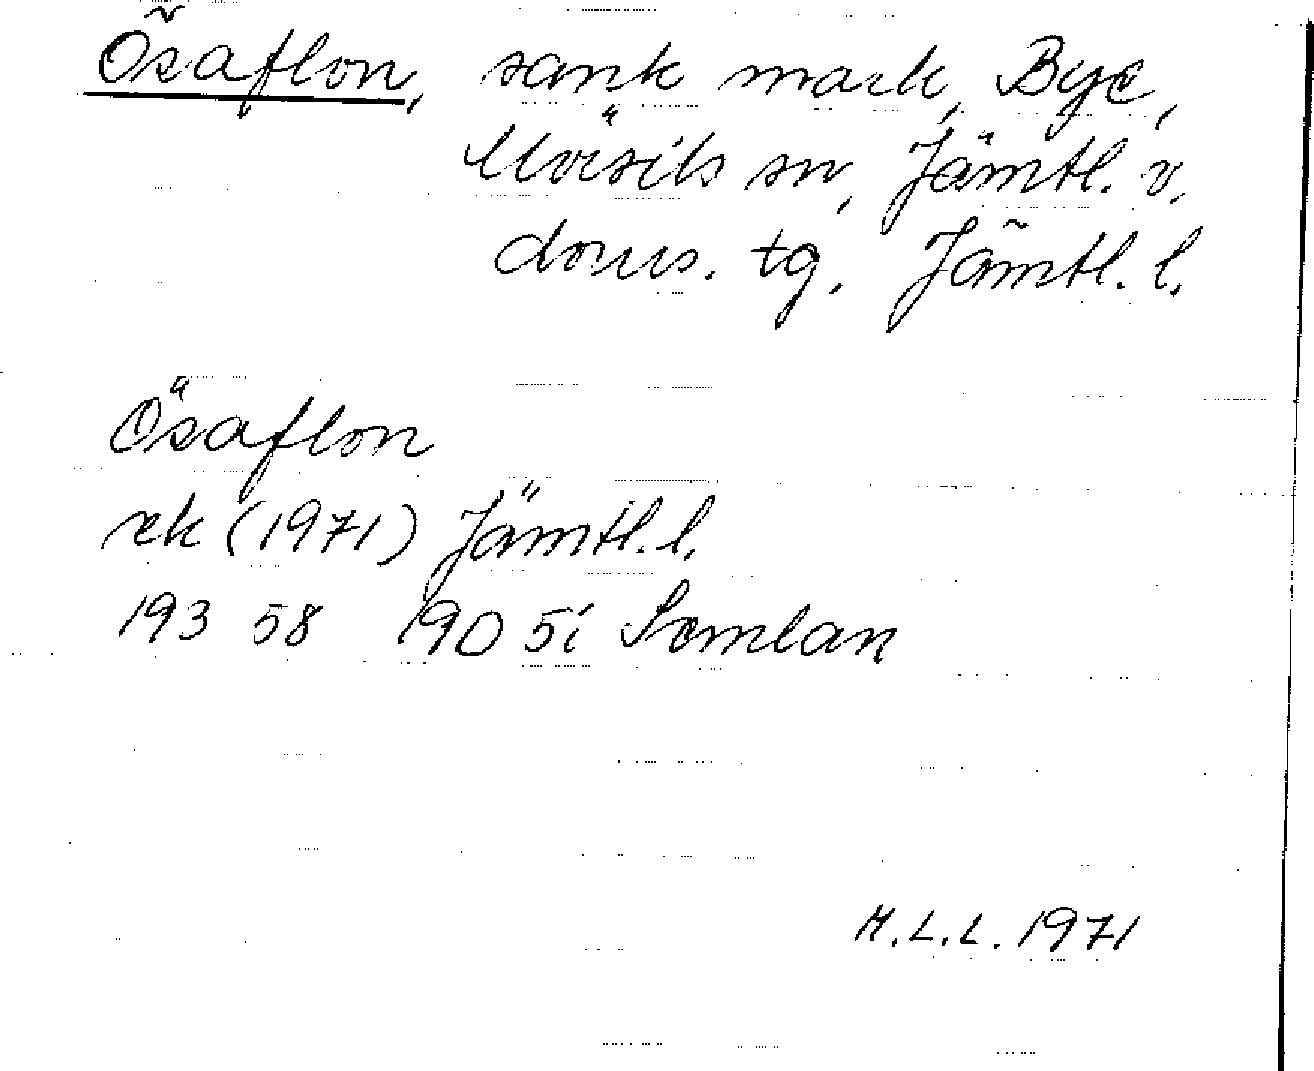 Ösaflon, sank mark, Bye,
Mörsils sn, Jämtl. v.
doms. tg. Jämtl. l.
Ösaflon
ek (1971) Jämtl. l.
193 58 190 5i Semlan
M.L.L. 1971